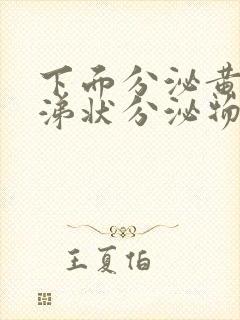 下而分泌黄
涕状分泌物
王夏伯